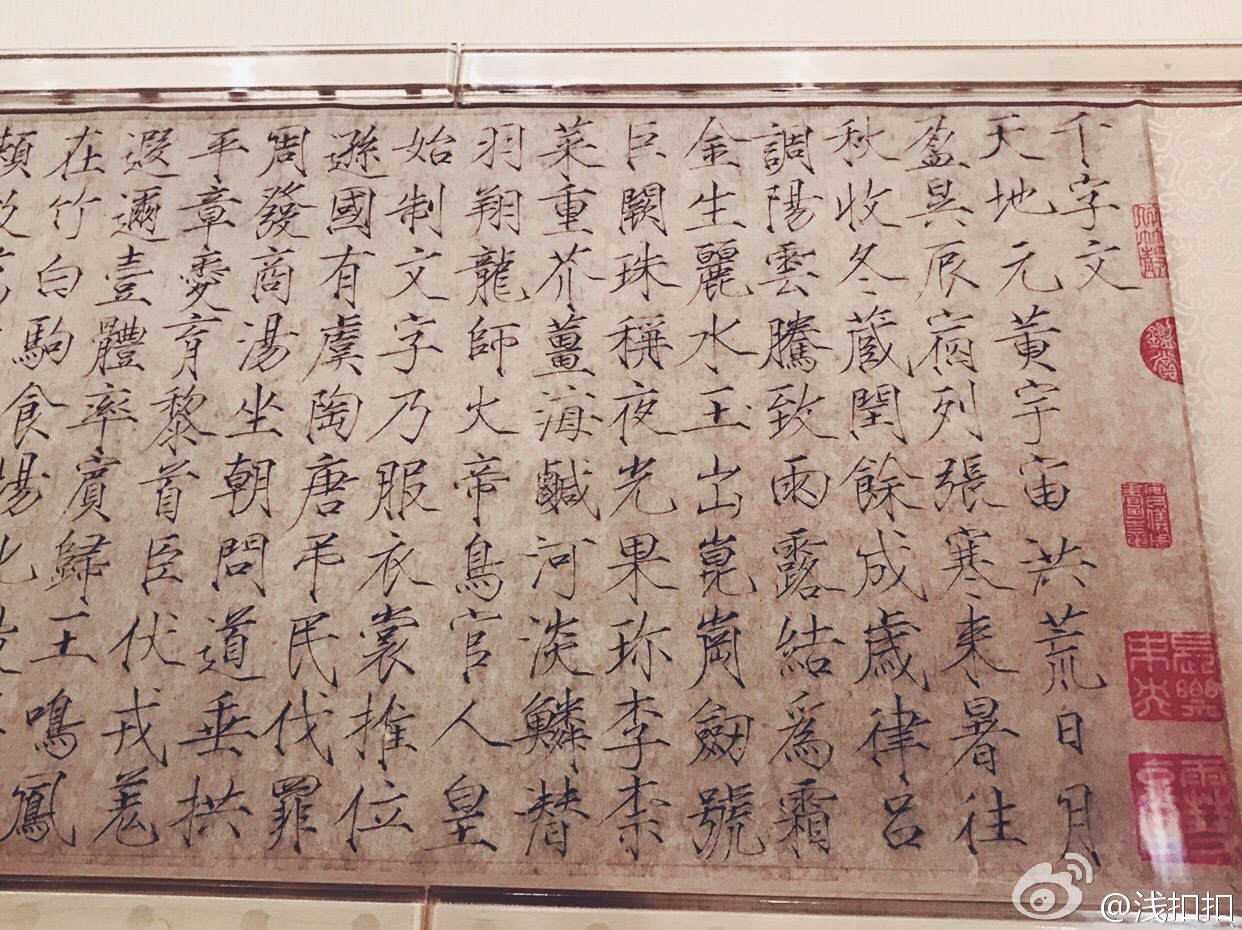 千字文
天地元黃宇宙洪荒日月
盈昃辰宿列張寒來暑往
秋收冬藏閏餘成歲律呂
調陽雲騰致雨露結爲霜
金生麗水玉出崑崗劔號
巨闕珠稱夜光果珍李柰
菜重芥薑海鹹河淡鱗潛
羽翔龍師火帝鳥官人皇
始制文字乃服衣裳推位
遜國有虞陶唐弔民伐罪
周發商湯坐朝問道垂拱
平章愛育黎首臣伏戎羌
遐邇壹體率賓歸王鳴鳳
在竹白駒食場化被
賴及
鑑賞
長樂未央
@浅扣扣